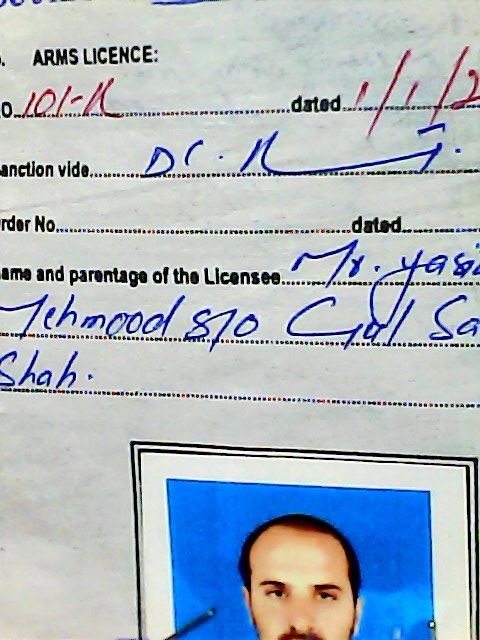 ARMS LICENCE:
o. 101-R dated 1/1/2
anction vide DC. R
rder No. dated
ame and parentage of the Licensee Mr. yasi
Mehmood S/O Gul Sa
Shah.